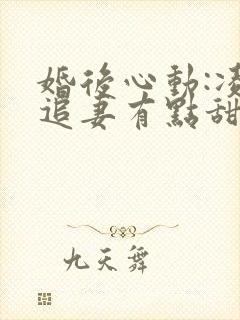 婚後心動:凌
追妻有點甜
九天舞